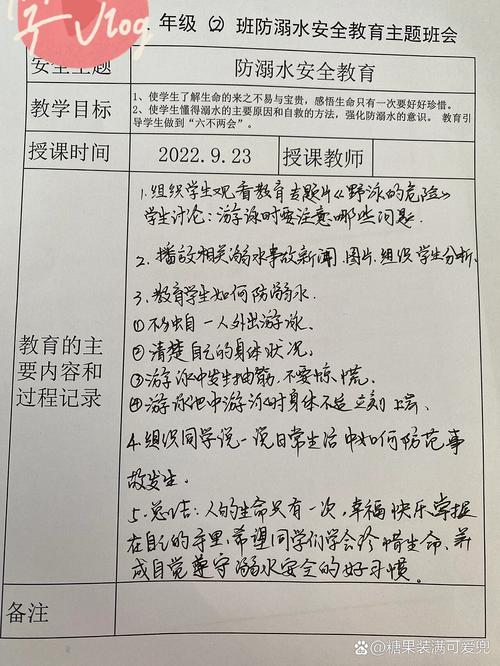 学
Vlog
年级（2）班防溺水安全教育主题班会
安全主题
防溺水安全教育
教学目标
1、使学生了解生命的来之不易与宝贵，感悟生命只有一次要好好珍惜。
2、使学生懂得溺水的主要原因和自救的方法，强化防溺水的意识。教育引
导学生做到“六不两会”。
授课时间
2022.9.23
授课教师
教育的主
要内容和
过程记录
1.组织学生观看教育专题片《野泳的危险》
学生讨论：游泳时要注意哪些问题.
2.播放相关溺水事故新闻.图片.组织学生分析.
3.教育学生如何防溺水.
①不独自一人外出游泳.
②清楚自己的身体状况.
③游泳中发生抽筋,不要惊慌.
④游泳池中游泳时身体不适立刻上岸.
4.组织同学说一说日常生活中如何防范事
故发生.
5.总结：人的生命只有一次，幸福快乐掌握
在自己的手里,希望同学们学会珍惜生命.养
成自觉遵守溺水安全的好习惯。
备注
@糖果装满可爱兜